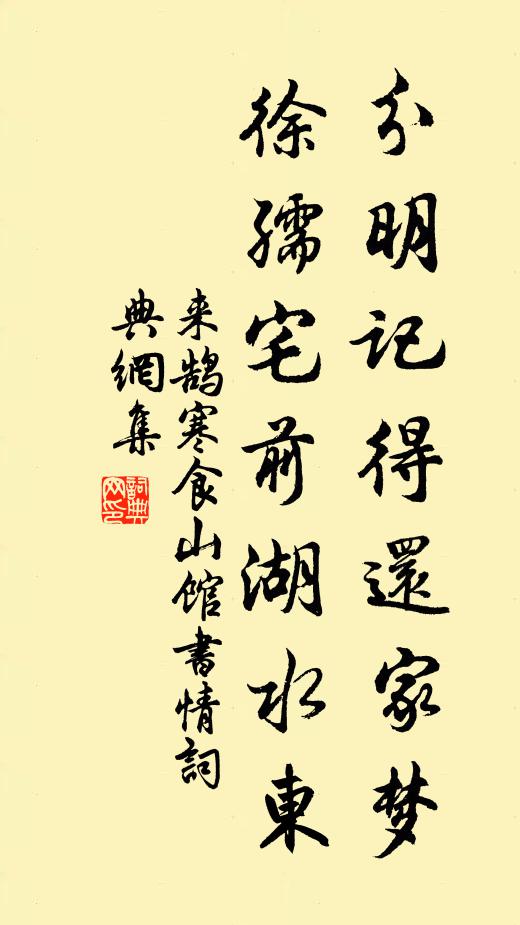 分明记得還家梦
徐孺宅前湖水東
来鹄寒食山館書情詞
典網集
詞典网印